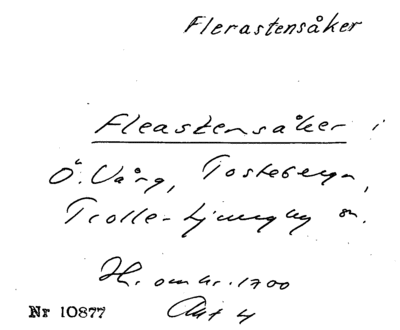 Flerastensåker
Fleastensåker i
Ö. Vång, Tosteberga,
Trolle-Ljungby sn.
Hr. om kr. 1700
Nr 10877 Akt 4